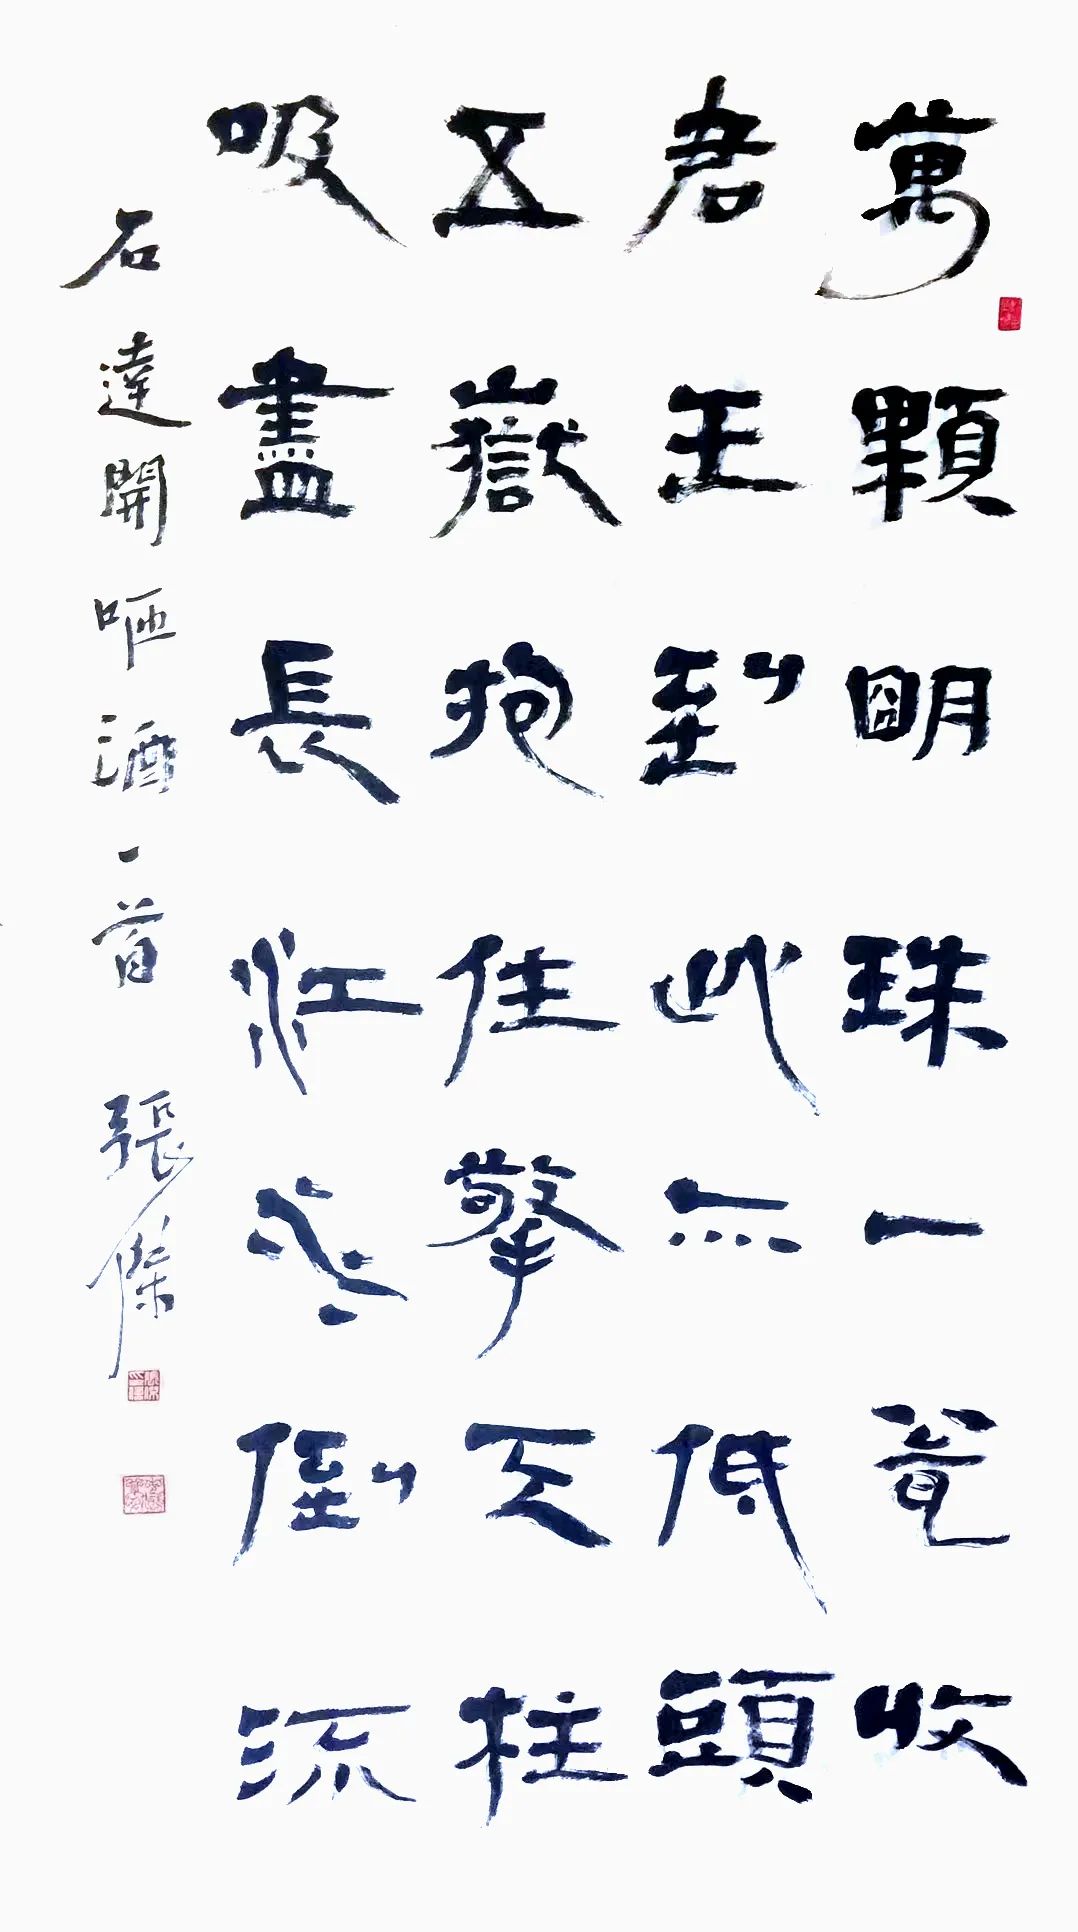 萬顆明珠一甕收
君王到此亦低頭
五嶽抱住擎天柱
吸盡長江水倒流
石達開咂酒一首 張傑